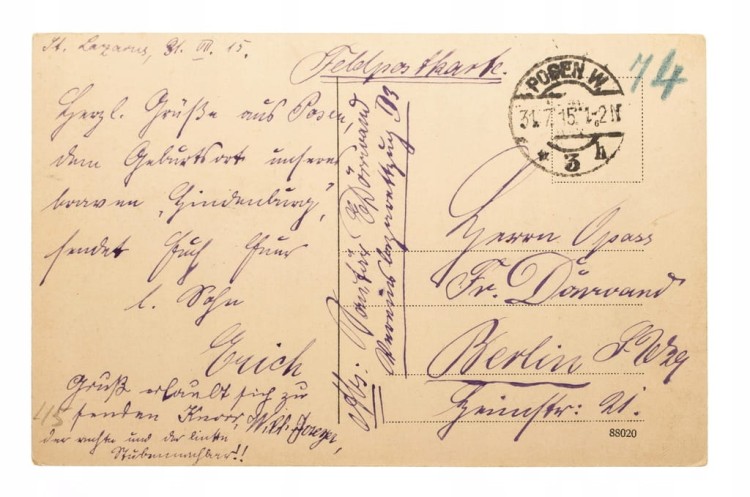 St. Lazarus, 31. VII. 15.
Herzl. Grüße aus Posen,
dem Geburtsort unseres
braven „Hindenburg",
sendet Euch Euer
l. Sohn
Erich
Gruß erlaubt sich zu
senden
der rechte und der linke
Stubennachbar!!
415
Feldpostkarte.
Abs: Sanitär E. Dörwand
Vereinslazarettzug B3
POSEN W.
31.7.15. 1-2 N
* 3 h
74
Herrn
Fr. Dörwand
Berlin S.W. 29
Heimstr: 21.
88020